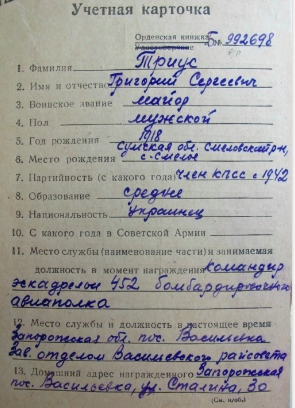 Учетная карточка
Орденская книжка Б № 992698
Удостоверение
1. Фамилия Триус
2. Имя и отчество Григорий Сергеевич
3. Воинское звание майор
4. Пол мужской
5. Год рождения 1918
6. Место рождения Сумская обл. Смеловский р-н, с. Смелое
7. Партийность (с какого года) член КПСС с 1942
8. Образование средне
9. Национальность украинец
10. С какого года в Советской Армии
11. Место службы (наименование части) и занимаемая
должность в момент награждения командир
эскадрильи 452 бомбардировочного
авиаполка
12. Место службы и должность в настоящее время
Запорожская обл. пос. Васильевка
Зав. отделом Васильевского райсовета
13. Домашний адрес награжденного Запорожская
пос. Васильевка, ул. Сталина, 30
(См. на об.)